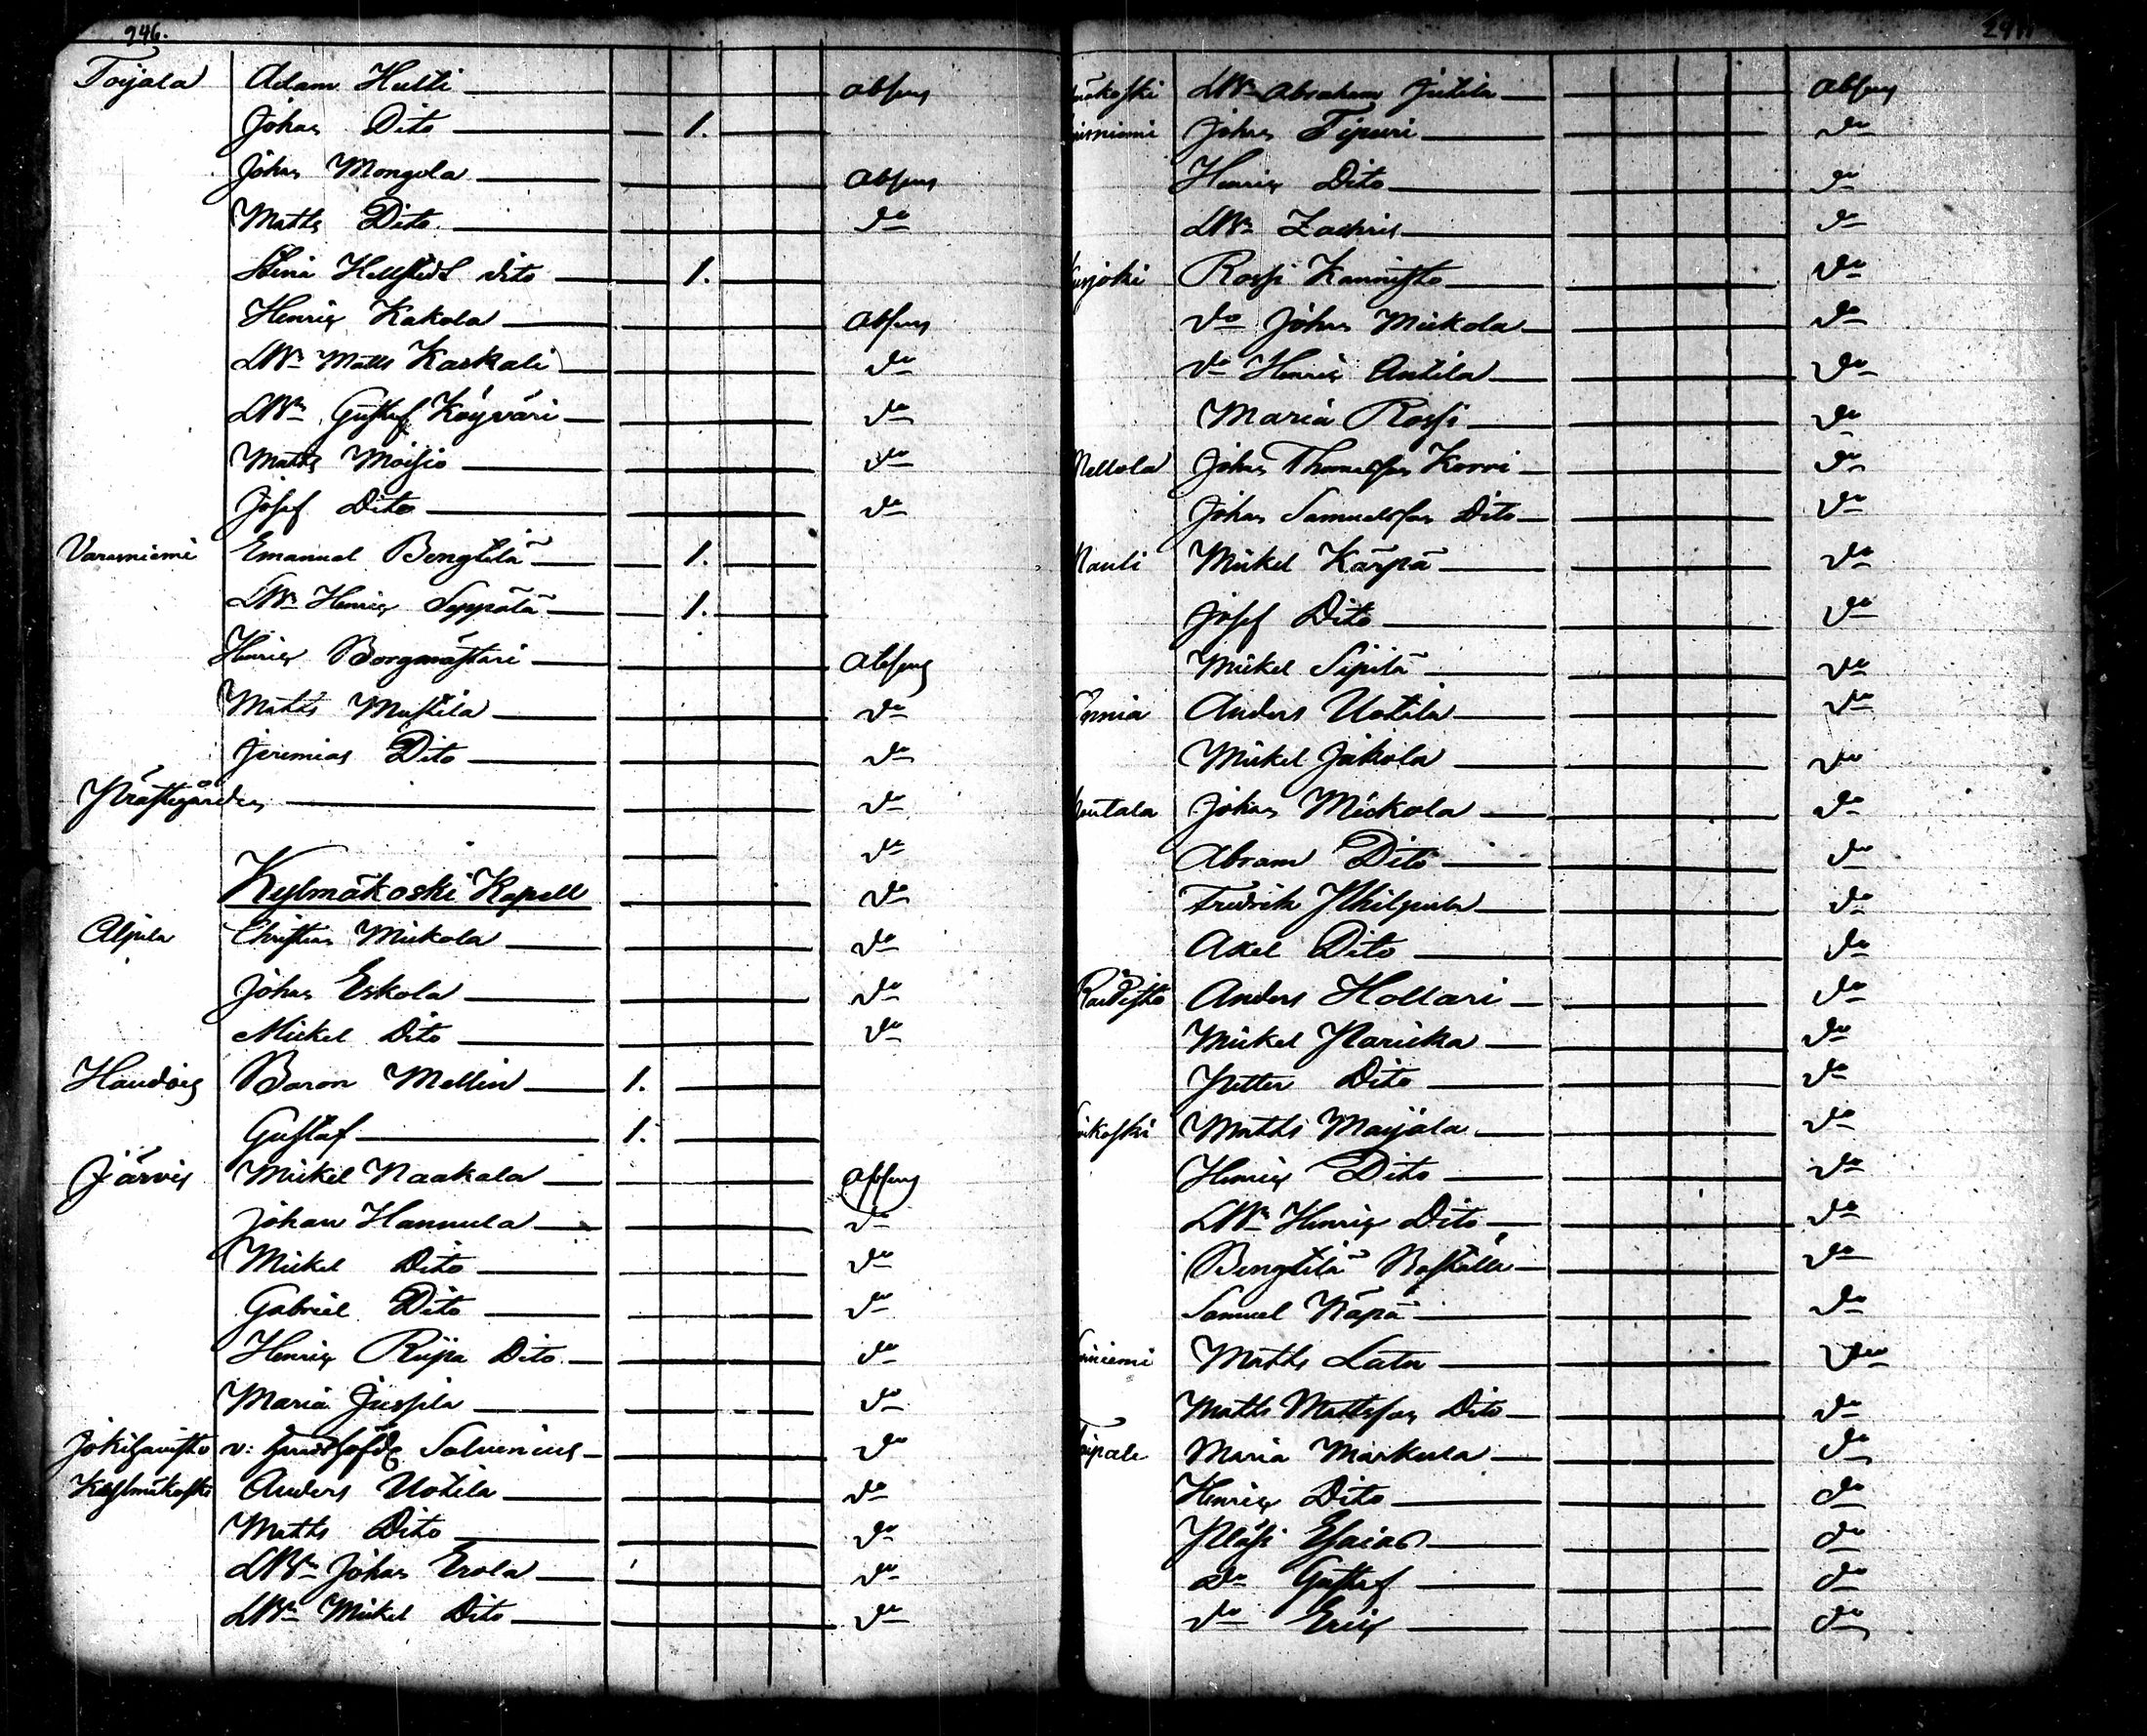 246.
Toijala Adam Hutti absens
Johan Dito 1.
Johan Mongola absens
Matts Dito do
Stina Hellsted dito 1.
Henric Kakola absens
LBr Matts Kaskali do
LBr Gustaf Köyväri do
Matts Moisio do
Josef Dito do
Varasniemi Emanuel Bengtilä 1.
LBr Henric Seppälä 1.
Henric Borgmästari absens
Matts Mustila do
Jeremias Dito do
Prästegården do
do
Kylmäkoski Kapell do
Alpila Christian Mickola do
Johan Eskola do
Mickel Dito do
Haudois Baron Mellin 1.
Gustaf 1.
Järvis Mickel Naakala absens
Johan Hannula do
Mickel Dito do
Gabriel Dito do
Henric Riipa Dito do
Maria Juspila do
Jokihavisto v: Häradshöfd Salvenius do
Kylmäkoski Anders Uotila do
Matts Dito do
LBr Johan Erola do
LBr Mickel Dito do
247
mäkoski LBr Abraham Jutila absens
niemi Johan Tipuri do
Henric Dito do
LBr Zachris do
joki Rossi Kannisto do
do Johan Mickola do
do Henric Antila do
Maria Rossi do
Mellola Johan Thomasson Korvi do
Johan Samuelsson Dito do
Nauli Mickel Kärpä do
Josef Dito do
Mickel Sipilä do
Onnia Anders Uotila do
Mickel Jakola do
utala Johan Mickola do
Abram Dito do
Fredrik Philpula do
Axel Dito do
Raudisto Anders Hollari do
Mickel Paricka do
Petter Dito do
ikoski Matts Maijala do
Henric Dito do
LBr Henric Dito do
Bengtilä Boställe do
Samuel Näpä do
niemi Matts Latu do
Matts Mattsson Dito do
Taipale Maria Markula do
Henric Dito do
Pläsi Esaias do
do Gustaf do
do Eric do